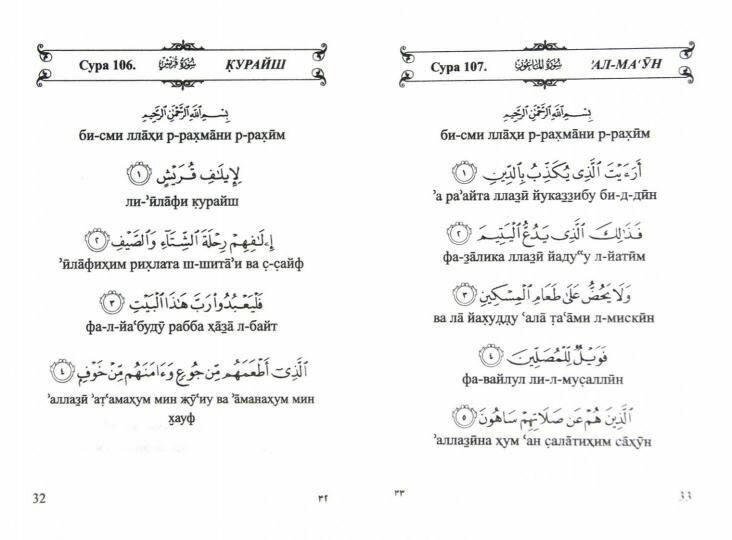 Сура 106. سُورَةُ قُرَيْشٍ ҚУРАЙШ
بِسْمِ اللَّهِ الرَّحْمَٰنِ الرَّحِيمِ
би-сми лла̄хи р-рахма̄ни р-рахӣм
لِإِيلَٰفِ قُرَيْشٍ ١
ли-ʼӣла̄фи қурайш
إِۦلَٰفِهِمْ رِحْلَةَ الشِّتَآءِ وَالصَّيْفِ ٢
ʼӣла̄фиҳим рихлата ш-шита̄ʼи ва с̣-с̣айф
فَلْيَعْبُدُوا۟ رَبَّ هَٰذَا الْبَيْتِ ٣
фа-л-йаʻбудӯ рабба ҳа̄з̱а л-байт
الَّذِىٓ أَطْعَمَهُم مِّن جُوعٍ وَءَامَنَهُم مِّنْ خَوْفٍۭ ٤
ʼаллаз̱ӣ ʼат̣ʻамаҳум мин җӯʻиу ва ʼа̄манаҳум мин
х̮ауф
32
٣٢
Сура 107. سُورَةُ الْمَاعُونِ ʼАЛ-МАʻӮН
بِسْمِ اللَّهِ الرَّحْمَٰنِ الرَّحِيمِ
би-сми лла̄хи р-рахма̄ни р-рахӣм
أَرَءَيْتَ الَّذِى يُكَذِّبُ بِالدِّينِ ١
ʼа раʼайта ллаз̱ӣ йуказ̱з̱ибу би-д-дӣн
فَذَٰلِكَ الَّذِى يَدُعُّ الْيَتِيمَ ٢
фа-з̱а̄лика ллаз̱ӣ йадуʻʻу л-йатӣм
وَلَا يَحُضُّ عَلَىٰ طَعَامِ الْمِسْكِينِ ٣
ва ла̄ йаху̣дду ʻала̄ т̣аʻа̄ми л-мискӣн
فَوَيْلٌ لِّلْمُصَلِّينَ ٤
фа-вайлул ли-л-мус̣аллӣн
الَّذِينَ هُمْ عَن صَلَاتِهِمْ سَاهُونَ ٥
ʼаллаз̱ӣна ҳум ʻан с̣ала̄тиҳим са̄ҳӯн
٣٣
33